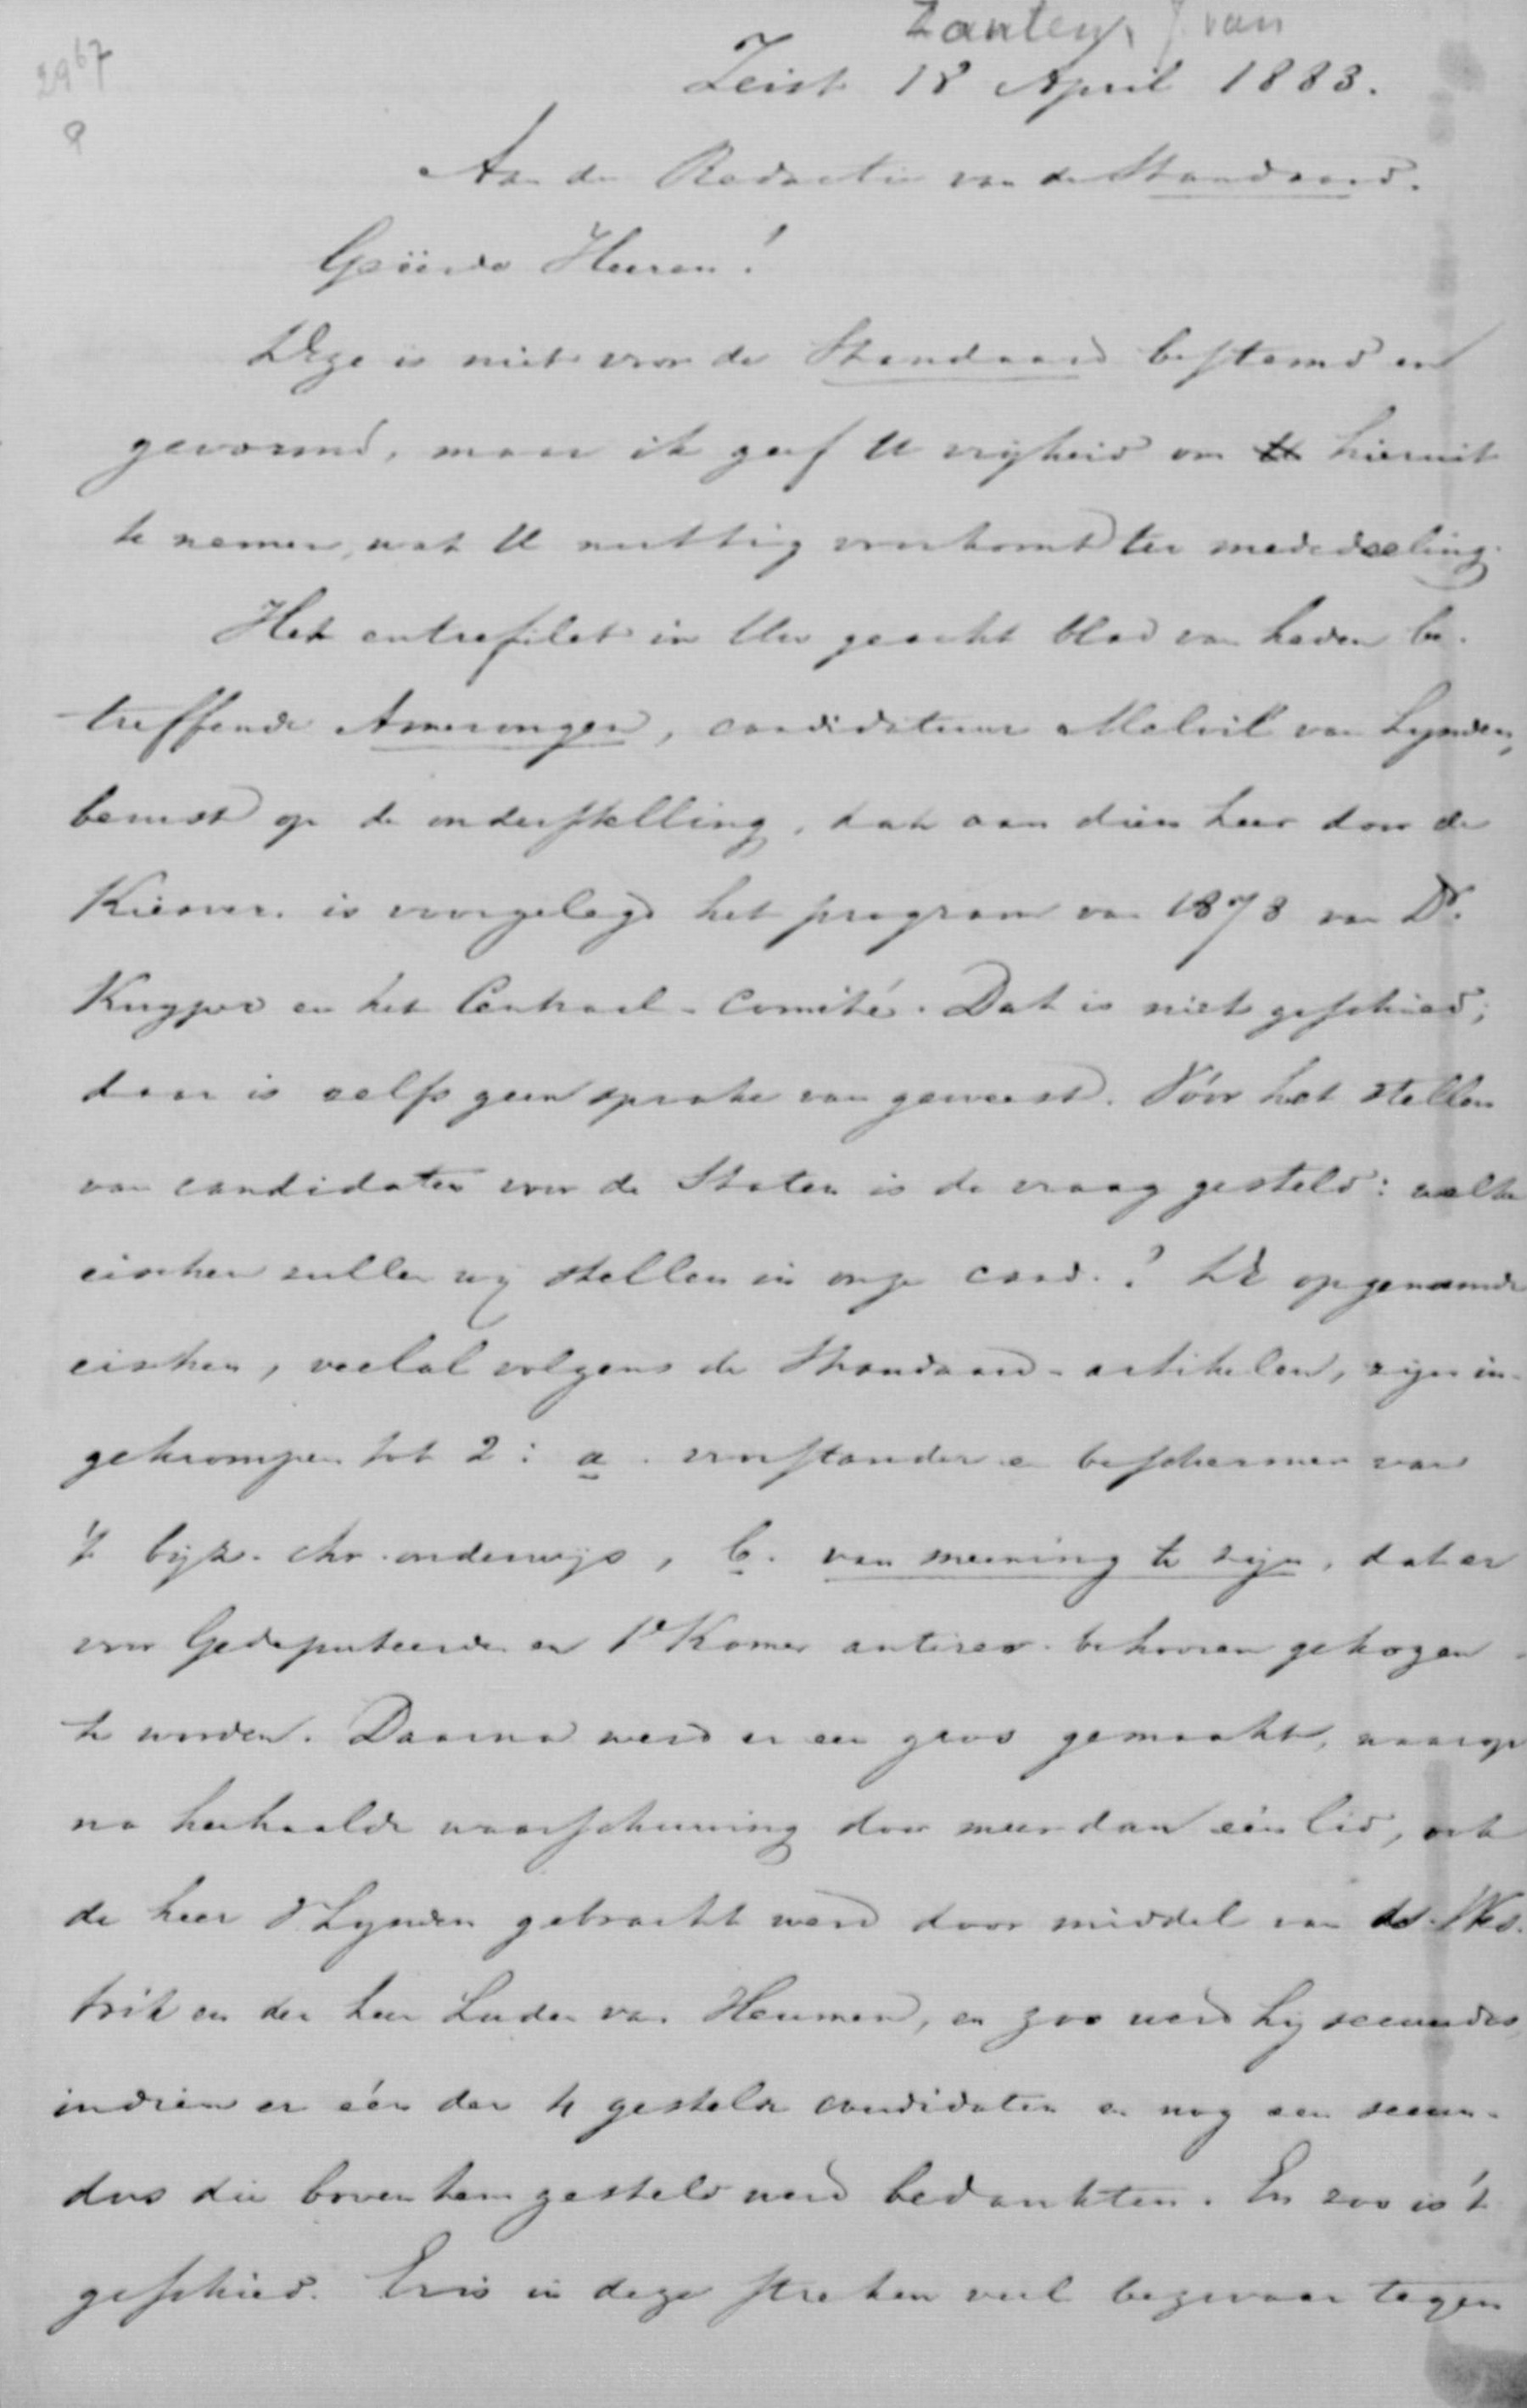 Zanten, J. van
2967
Zeist 18 April 1883.
Aan de Redactie van de Standaard.
Geëerde Heeren!
Deze is niet voor de Standaard bestemd en
gevormd, maar ik geef U vrijheid om hieruit
te nemen, wat U nuttig voorkomt ter mededeeling.
Het entrefilet in Uw geacht blad van heden be-
treffende Amerongen, candidatuur Melvil van Lynden,
berust op de onderstelling, dat aan dien heer door de
Kiesver. is voorgelegd het program van 1878 van Dr.
Kuyper en het Centraal-Comité. Dat is niet geschied;
daar is zelfs geen sprake van geweest. Vóór het stellen
van candidaten voor de Staten is de vraag gesteld: welke
eischen zullen wij stellen in onze cand.? De opgenoemde
eischen, veelal volgens de Standaard-artikelen, zijn in-
gekrompen tot 2: a. voorstander en beschermer van
't bijz. chr. onderwijs, b. van meening te zijn, dat er
voor Gedeputeerden en 1e Kamer antirev. behooren gekozen
te worden. Daarna werd er een gros gemaakt, waarop
na herhaalde waarschuwing door meer dan één lid, ook
de heer v Lynden gebracht werd door middel van ds.
en den heer Luden van Heumen, en zoo werd hij secundus,
indien er één der 4 gestelde candidaten en nog een secun-
dus die boven hem gesteld werd bedankten. En zoo is 't
geschied. Er is in deze streken veel bezwaar tegen